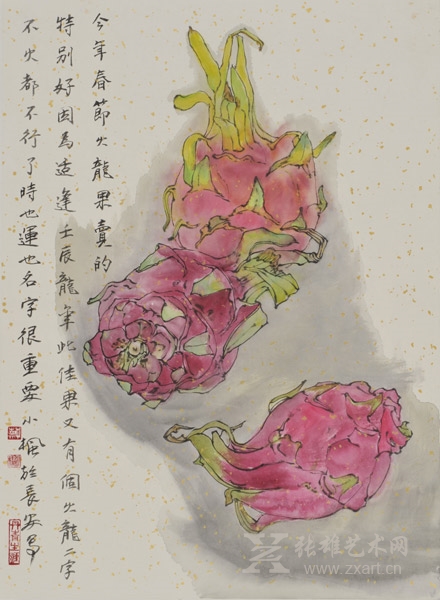 今年春節火龍果賣的
特别好因為适逢壬辰龍年此佳果又有個火龍二字
不火都不行了時也運也名字很重要小楓於長安寫
张雄艺术网
www.zxart.cn